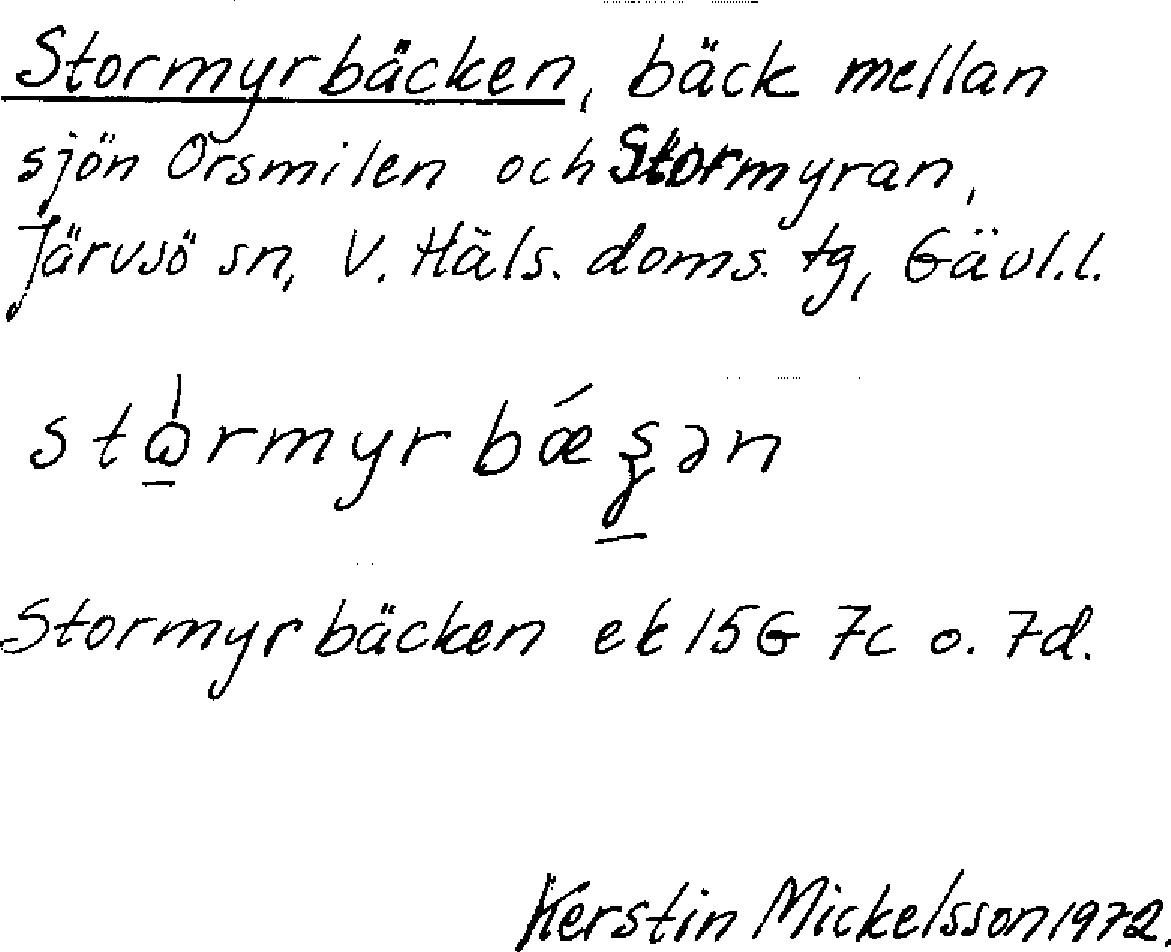 Stormyrbäcken, bäck mellan
sjön Örsmilen och Stormyran,
Järvsö sn, V. Häls. doms. tg, Gävl.l.
Stormyrbäcken ek 15G 7c o. 7d.
Kerstin Mickelsson 1972.